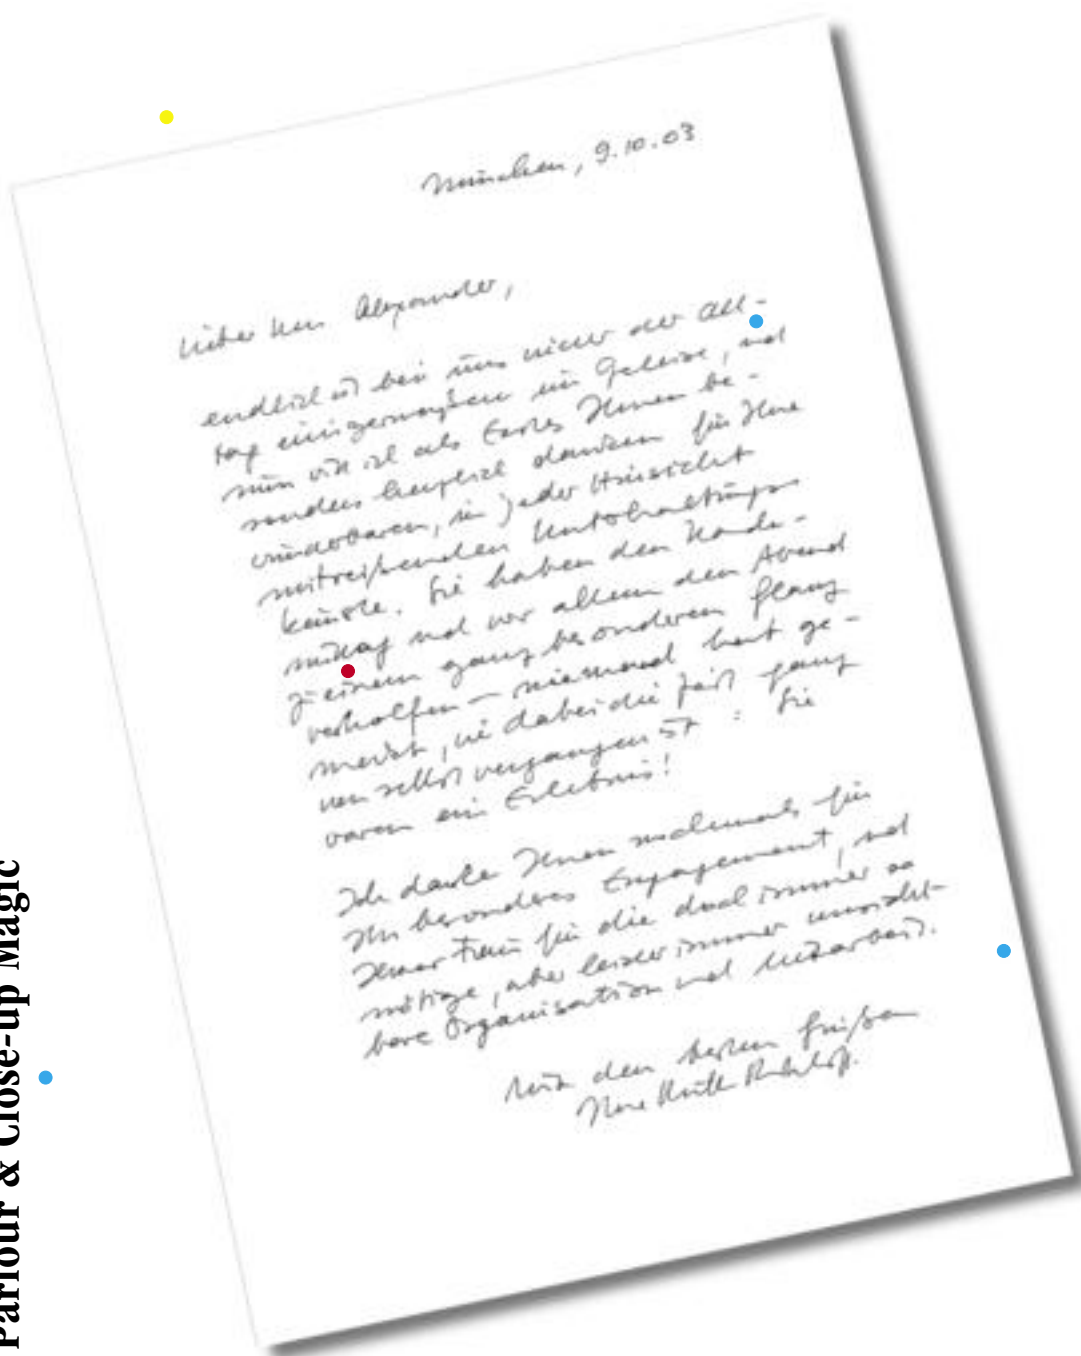 München, 9.10.03
Lieber Herr Alexander,
endlich ist bei uns wieder der All-
tag einigermaßen im Geleise, und
nun will ich als Erstes Ihnen be-
sonders herzlich danken für Ihre
wunderbaren, in jeder Hinsicht
mitreißenden Unterhaltungs
künste. Sie haben den
und vor allem den Abend
zu einem ganz besonderen Glanz
verholfen – niemand hat ge-
merkt, wie dabei die Zeit ganz
von selbst vergangen ist : Sie
waren ein Erlebnis!
Ich danke Ihnen nochmals für
Ihr besonderes Engagement, und
Ihrer Frau für die doch immer so
nötige, aber leider immer unsicht-
bare Organisation und Mitarbeit.
Mit den besten Grüßen
Parlour & Close-up Magic